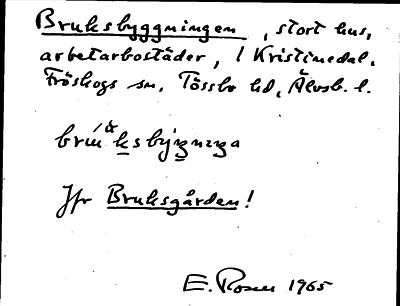 Bruksbyggningen, stort hus,
arbetarbostäder, i Kristinedal,
Fröskogs sn, Tössbo hd, Älvsb. l.
Jfr Bruksgården!
E. Rosen 1965